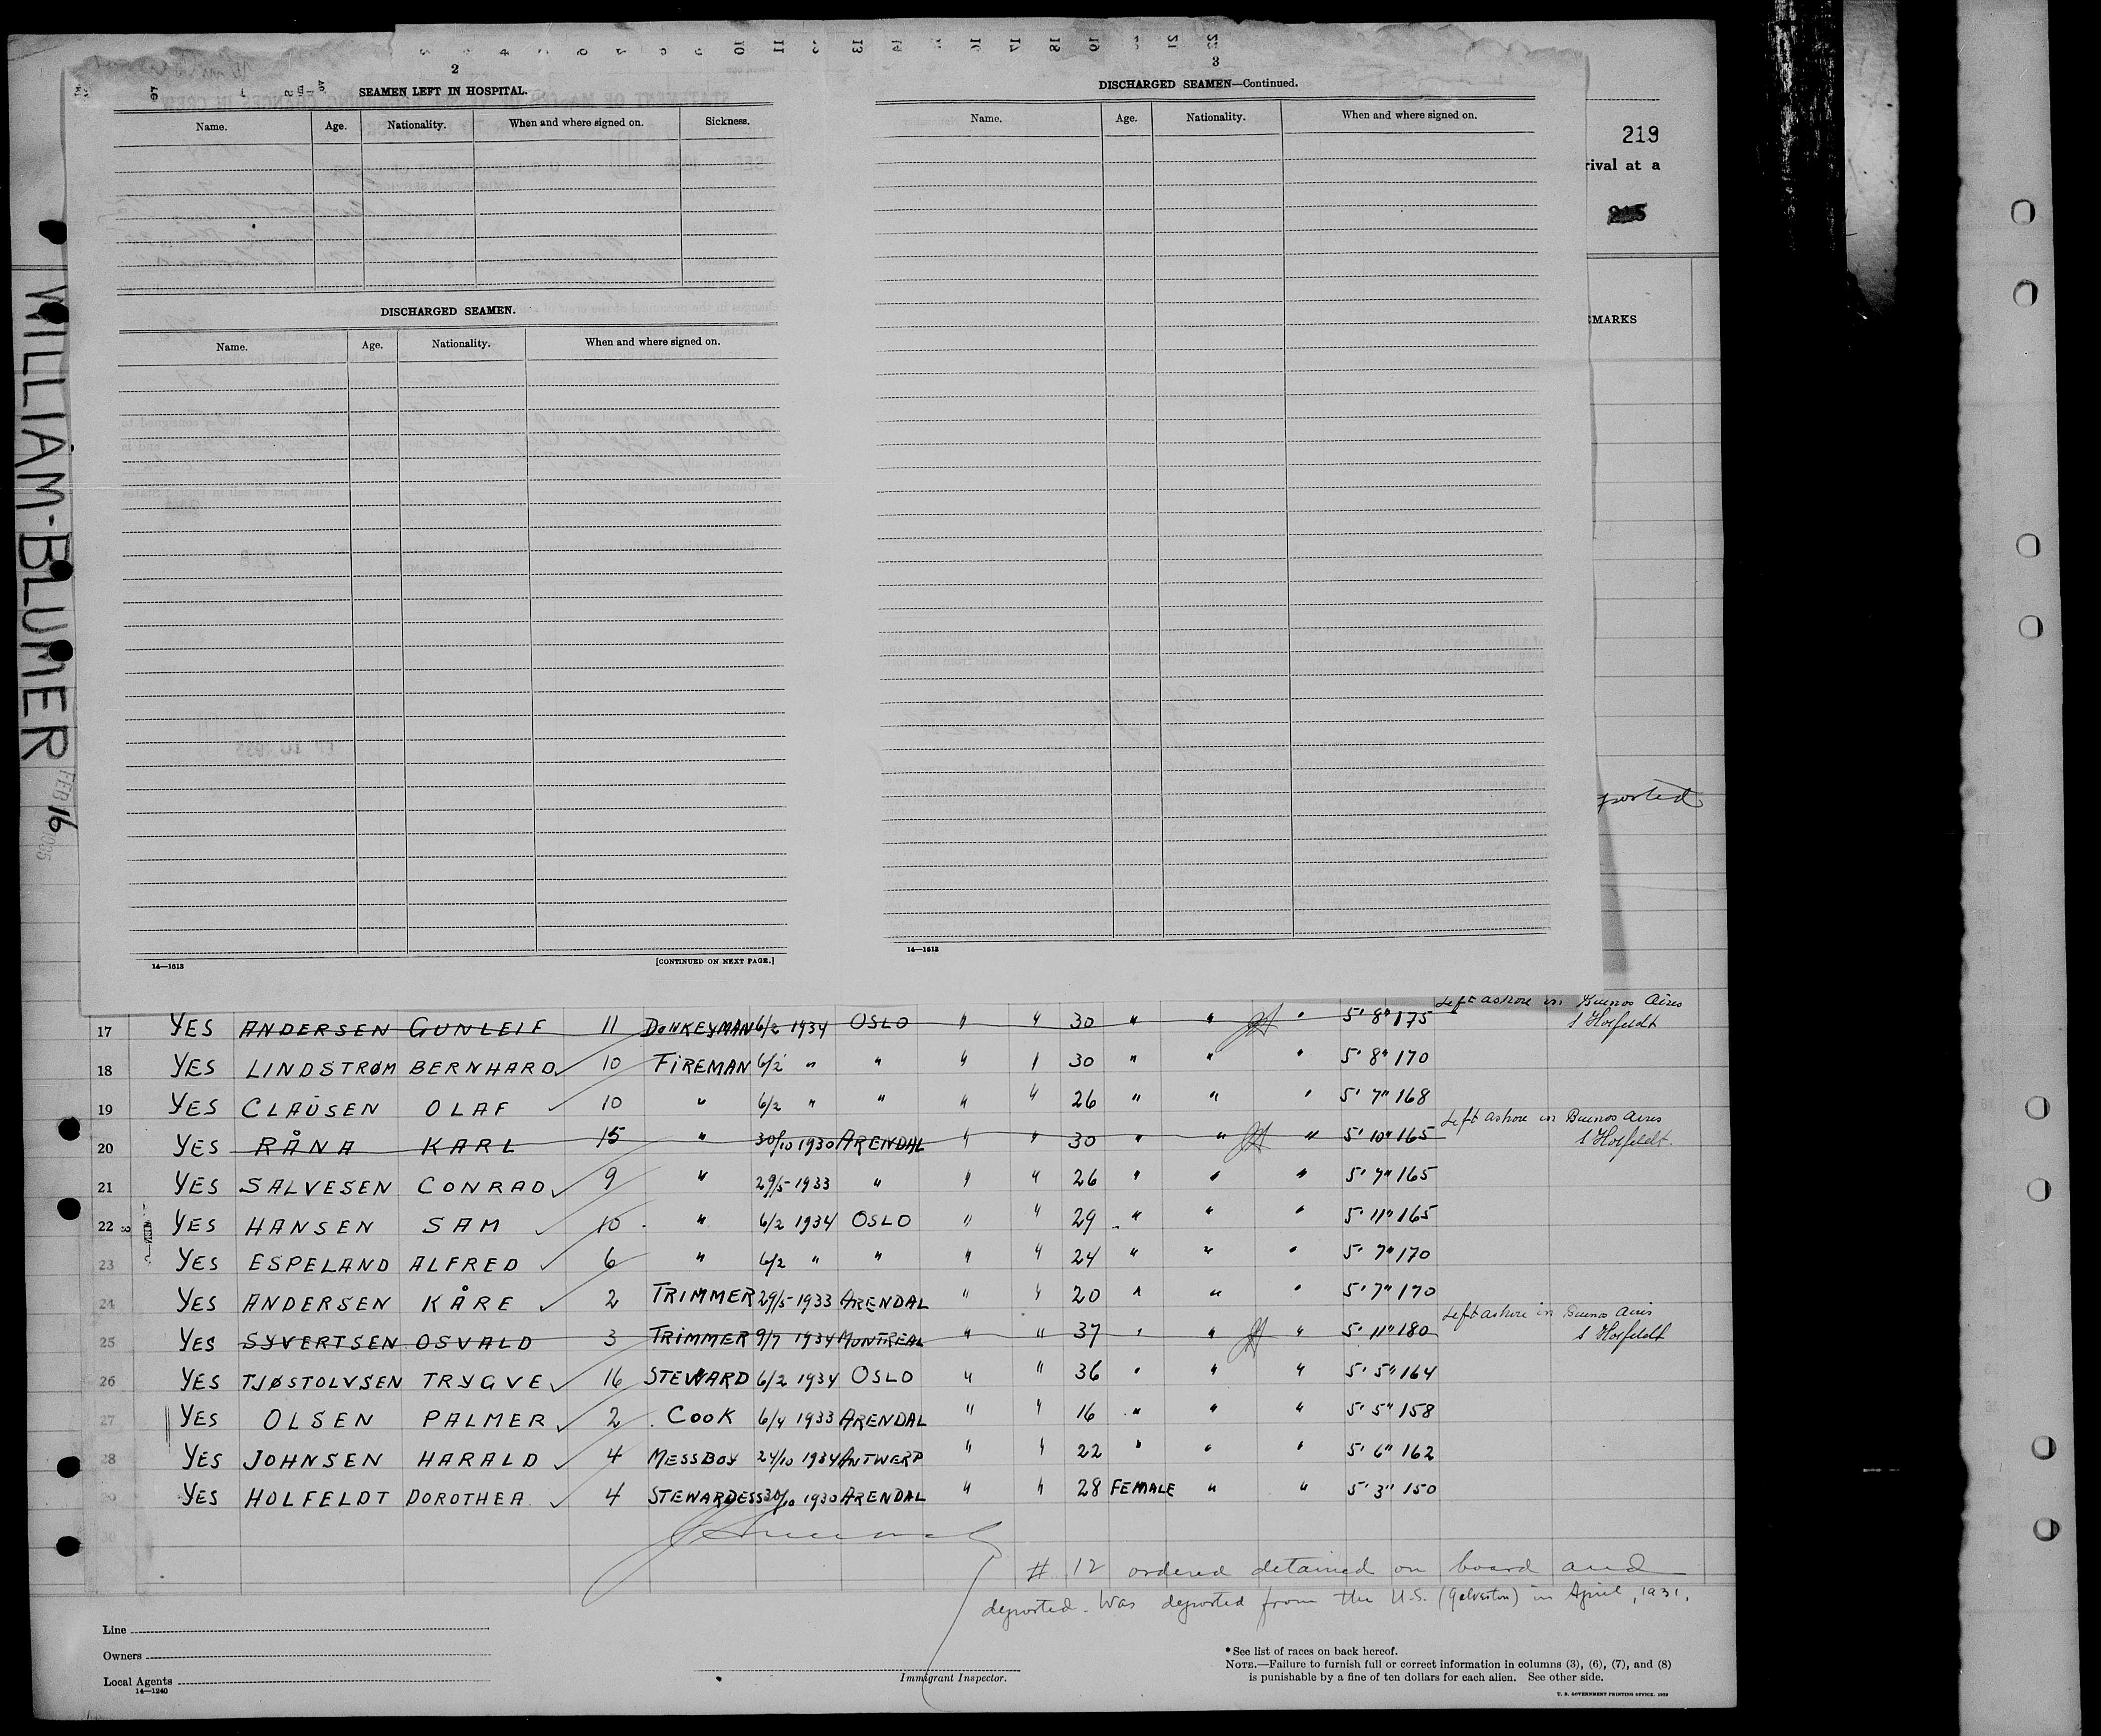 2
SEAMEN LEFT IN HOSPITAL.
Name. Age. Nationality. When and where signed on. Sickness.
DISCHARGED SEAMEN.
Name. Age. Nationality. When and where signed on.
14—1613
[CONTINUED ON NEXT PAGE.]
3
DISCHARGED SEAMEN—Continued.
Name. Age. Nationality. When and where signed on.
14—1613
219
rival at a
MARKS
ported
WILLIAM-BLUMER FEB 16
Left ashore in Buenos Aires
17 YES ANDERSEN GUNLEIF 11 DONKEYMAN 6/2 1934 OSLO " " 30 " " " 5' 8" 175
18 YES LINDSTRØM BERNHARD 10 FIREMAN 6/2 " " " " 30 " " " 5' 8" 170
19 YES CLAUSEN OLAF 10 " 6/2 " " " " 26 " " " 5' 7" 168
Left ashore in Buenos Aires
20 YES RÅNA KARL 15 " 30/10 1930 ARENDAL " " 30 " " " 5' 10" 165
21 YES SALVESEN CONRAD 9 " 29/5-1933 " " " 26 " " " 5' 7" 165
22 YES HANSEN SAM 10 " 6/2 1934 OSLO " " 29 " " " 5' 11" 165
23 YES ESPELAND ALFRED 6 " 6/2 " " " " 24 " " " 5' 7" 170
24 YES ANDERSEN KÅRE 2 TRIMMER 29/5-1933 ARENDAL " " 20 " " " 5' 7" 170
Left ashore in Buenos Aires
25 YES SYVERTSEN OSVALD 3 TRIMMER 9/7 1934 MONTREAL " " 37 " " " 5' 11" 180
26 YES TJØSTOLVSEN TRYGVE 16 STEWARD 6/2 1934 OSLO " " 36 " " " 5' 5" 164
27 YES OLSEN PALMER 2 COOK 6/4 1933 ARENDAL " " 16 " " " 5' 5" 158
28 YES JOHNSEN HARALD 4 MESSBOY 24/10 1934 ANTWERP " " 22 " " " 5' 6" 162
29 YES HOLFELDT DOROTHEA 4 STEWARDESS 30/10 1930 ARENDAL " " 28 FEMALE " " 5' 3" 150
30
# 12 ordered detained on board and
deported. Was deported from the U.S. (Galveston) in April, 1931.
Line
Owners
Local Agents
14—1240
Immigrant Inspector.
* See list of races on back hereof.
NOTE.—Failure to furnish full or correct information in columns (3), (6), (7), and (8)
is punishable by a fine of ten dollars for each alien. See other side.
U. S. GOVERNMENT PRINTING OFFICE. 1929